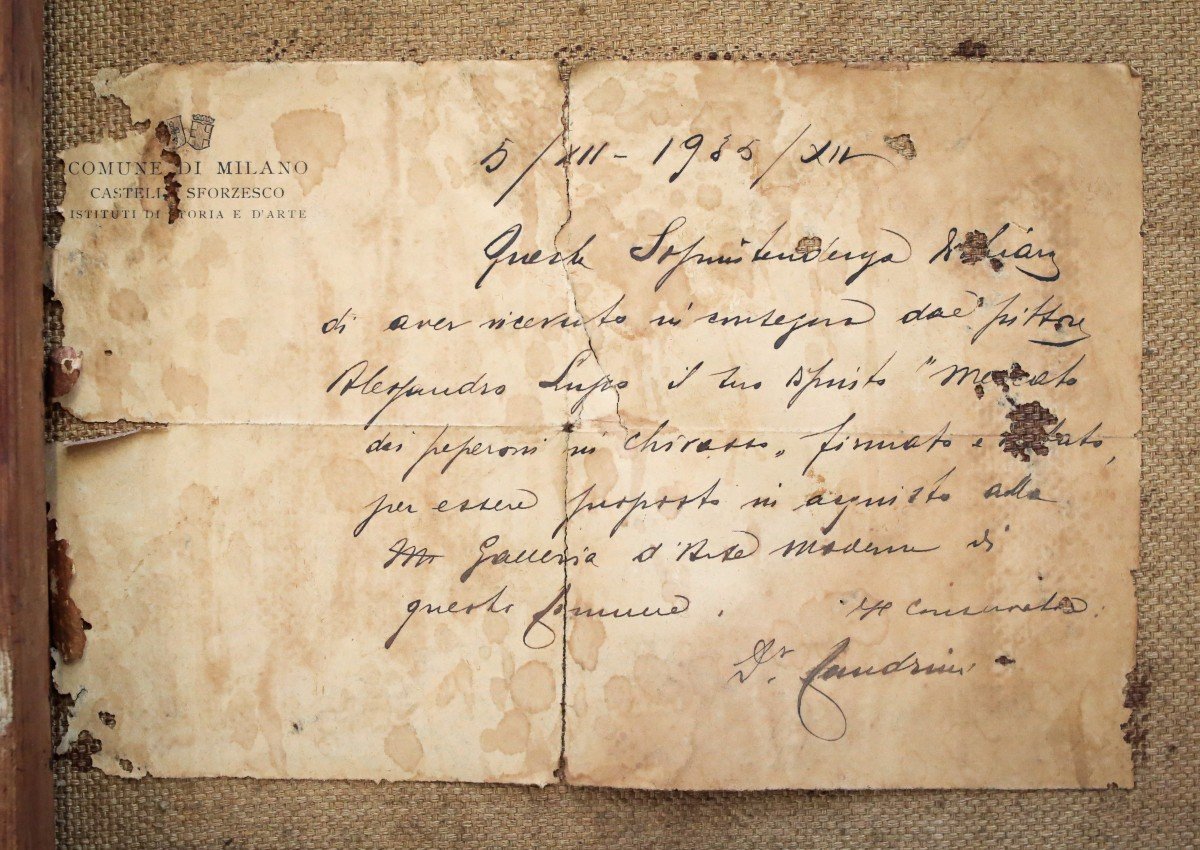 COMUNE DI MILANO
CASTELLO SFORZESCO
ISTITUTI DI STORIA E D'ARTE
5/XII - 1935/XIV
Questa Soprintendenza dichiara
di aver ricevuto in consegna dal pittore
Alessandro Lupo il suo dipinto "Mercato
dei peperoni in Chivasso" firmato e datato,
per essere proposto in acquisto alla
Galleria d'Arte Moderna di
questo Comune.
Il Conservatore:
Dr.